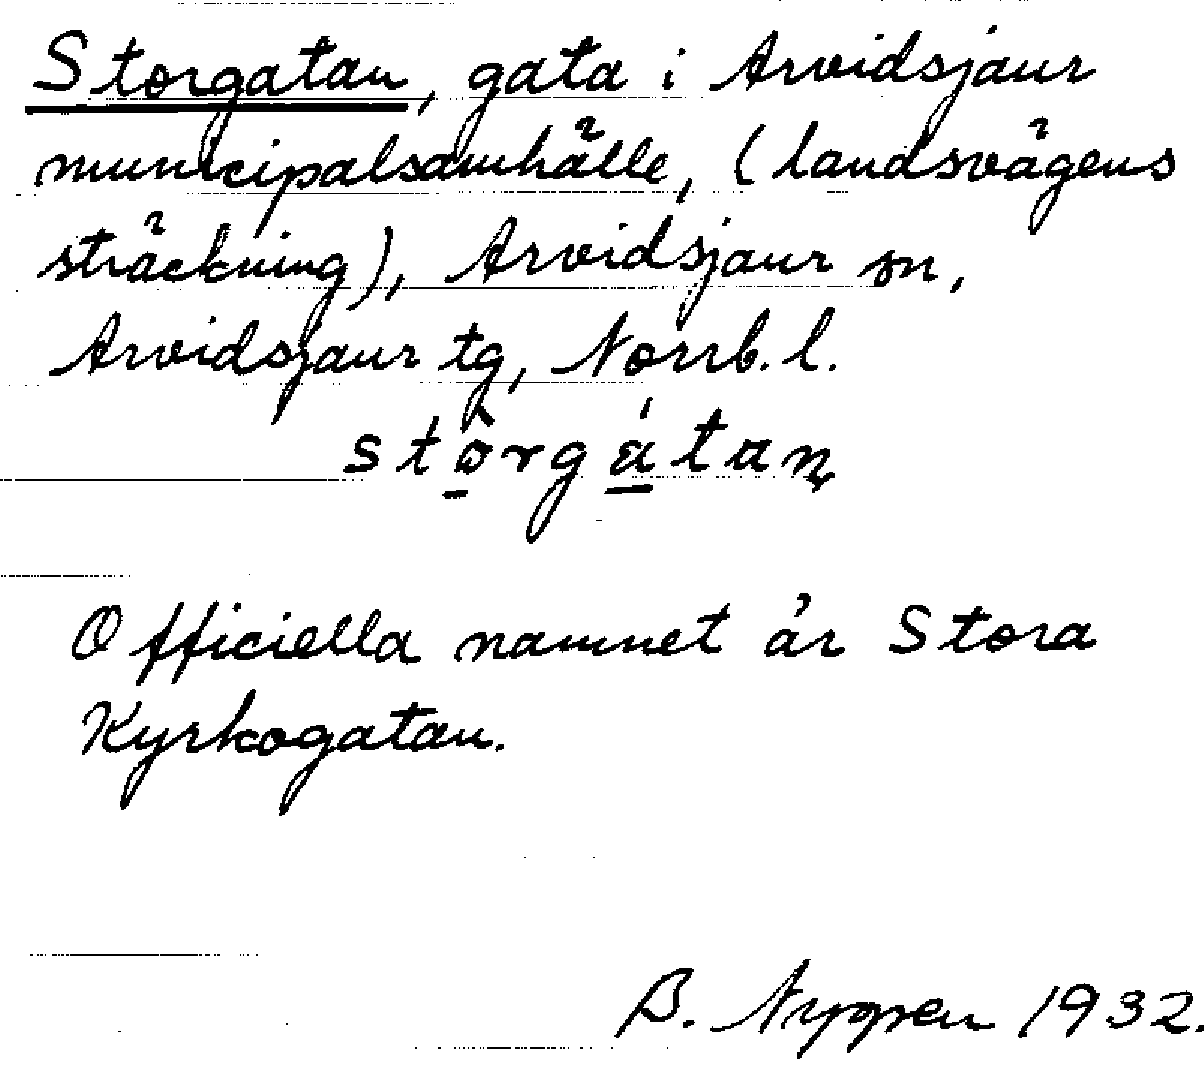 Storgatan, gata i Arvidsjaur
municipalsamhälle, (landsvägens
sträckning), Arvidsjaur sn,
Arvidsjaur tg, Norrb. l.
stòrgátan
Officiella namnet är Stora
Kyrkogatan.
B. Nygren 1932.